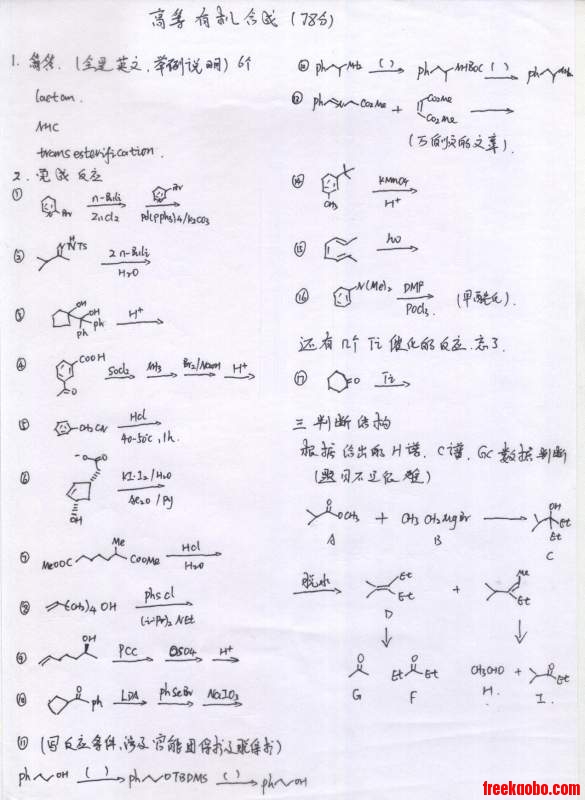 高等有机合成 (78分)
1. 解释. (全是英文, 举例说明) 6个
lactam.
NHC
transesterification.
2. 完成反应
① Br n-BuLi ZnCl2 Br Pd(PPh3)4/K2CO3
② N NTS H 2 n-BuLi H2O
③ OH OH Ph Ph H+
④ COOH O SOCl2 NH3 Br2/NaOH H+
⑤ CH2CN HCl 40-50℃, 1h.
⑥ O O OH KI-I2/H2O Ac2O/Py
⑦ MeOOC Me COOMe HCl H2O
⑧ (CH2)4OH PhSCl (i-Pr)2NEt
⑨ OH PCC OSO4 H+
⑩ O Ph LDA PhSeBr NaIO3
⑪ (写反应条件, 涉及官能团保护及脱保护)
Ph OH ( ) Ph OTBDMS ( ) Ph OH
Ph NH2 ( ) Ph NHBOC ( ) Ph NH2
⑬ Ph COOMe + COOMe COOMe
(万伯顺的文章).
⑭ CH3 KMnO4 H+
⑮ hυ
⑯ N(Me)2 DMF POCl3 (甲酰化).
还有几个Ti催化的反应.忘了.
⑰ O Ti
三 判断结构
根据给出的H谱, C谱, GC数据判断
(题目不过很难)
O OCH3 + CH3CH2MgBr OH Et Et
A B C
脱水 Et Et + Me Et
D
O Et O Et CH3CHO + O Et
G F H. I.
freekaobo.com